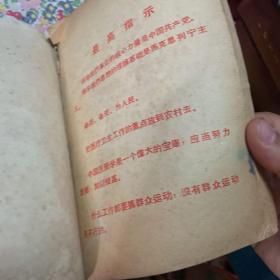 最高指示
领导我们事业的核心力量是中国共产党。
指导我们思想的理论基础是马克思列宁主
义。
备战、备荒、为人民。
把医疗卫生工作的重点放到农村去。
中国医药学是一个伟大的宝库，应当努力
发掘，加以提高。
什么工作都要搞群众运动，没有群众运动
是不行的。